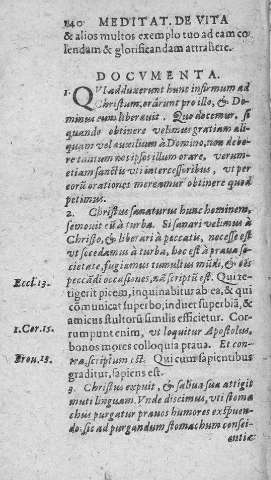 240 MEDITAT. DE VITA
& alios multos exemplo tuo ad eam co
lendam & glorificandam attrahere.
DOCVMENTA.
1. QVI adduxerunt hunc infirmum ad
Christum, orârunt pro illo, & Do-
minus eum liberauit. Quo docemur, si
quando obtinere velimus gratiam ali-
quam vel auxilium à Domino, non debe
re tantum nos ipsos illum orare, verum-
etiam sanctis vti intercessoribus, vt per
eorũ orationes mereamur obtinere quod
petimus.
2. Christus sanaturus hunc hominem,
semouit eũ à turba. Si sanari velimus à
Christo, & liberari à peccatis, necesse est
vt secedamus à turba, hoc est à praua so-
cietate, fugiamus tumultus mũdi, & oẽs
peccãdi occasiones, nã scriptũ est. Qui te-
Eccl. 13. tigerit picem, inquinabitur ab ea, & qui
cõmunicat superbo, induet superbiã, &
amicus stultorũ similis efficietur. Cor-
1. Cor. 15. rumpunt enim, vt loquitur Apostolus,
bonos mores colloquia praua. Et con-
Prou. 13. tra, scriptum est. Qui cum sapientibus
graditur, sapiens est.
3 Christus expuit, & saliua sua attigit
muti linguam. Vnde discimus, vti stoma
chus purgatur prauos humores exspuen-
do: sic ad purgandum stomachum consci-
entiæ